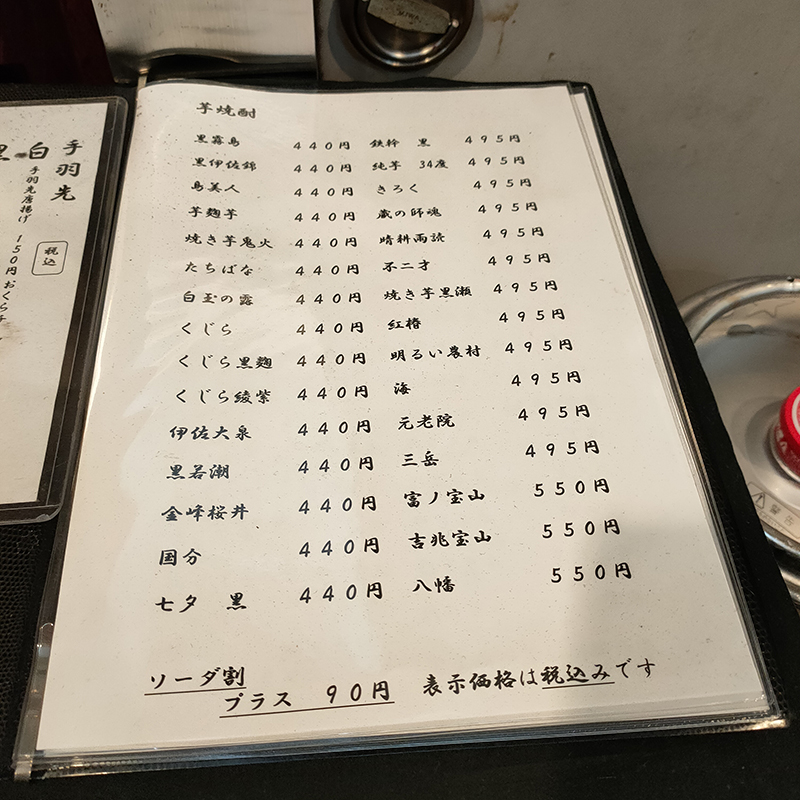 芋焼酎
黒霧島 440円 鉄幹 黒 495円
黒伊佐錦 440円 純芋 34度 495円
島美人 440円 きろく 495円
芋麹芋 440円 蔵の師魂 495円
焼き芋鬼火 440円 晴耕雨読 495円
たちばな 440円 不二才 495円
白玉の露 440円 焼き芋黒瀬 495円
くじら 440円 紅椿 495円
くじら黒麹 440円 明るい農村 495円
くじら綾紫 440円 海 495円
伊佐大泉 440円 元老院 495円
黒若潮 440円 三岳 495円
金峰桜井 440円 富ノ宝山 550円
国分 440円 吉兆宝山 550円
七夕 黒 440円 八幡 550円
ソーダ割
プラス 90円 表示価格は税込みです
手羽先
税込
白
黒
手羽先唐揚げ 150円
おくら
警告